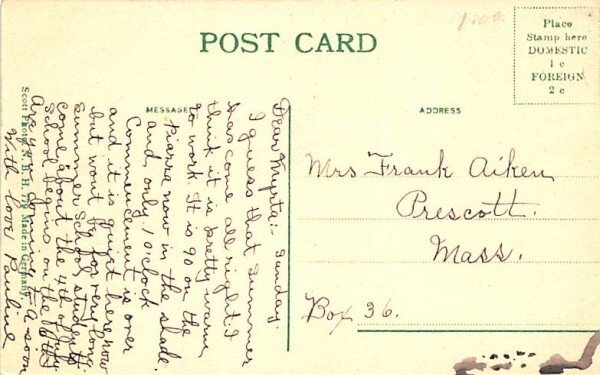 POST CARD
1.00
Place
Stamp here
DOMESTIC
1 c
FOREIGN
2 c
MESSAGE
ADDRESS
Dear Myrta:- Sunday.
I guess that summer
has come all right. I
think it is pretty warm
to work. It is 90 on the
Piazza now in the shade
and only 1 o'clock
Commencement is over
and it is quiet here now
but wont be for very long
Summer School students
come about the 4th of July
School begins on the
Are you coming to A soon
With love, Pauline
Mrs Frank Aiken
Prescott.
Mass.
Box 36.
Scott Photo N. B. H. Made in Germany